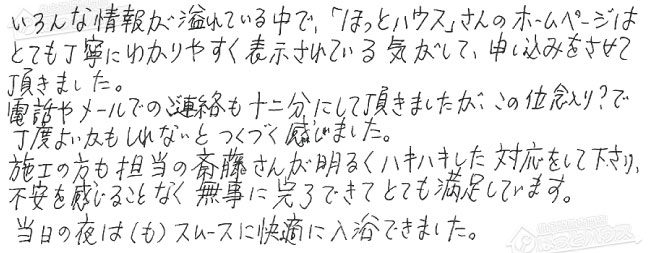 いろんな情報が溢れている中で、「ほっとハウス」さんのホームページは
とても丁寧にわかりやすく表示されている気がして、申し込みをさせて
頂きました。
電話やメールでのご連絡も十二分にして頂きましたが、この位念入り?で
丁度よいかもしれないと つくづく感じました。
施工の方も担当の斎藤さんが明るくハキハキした対応をして下さり、
不安を感じることなく無事に完了できてとても満足しています。
当日の夜は(も)スムースに快適に入浴できました。